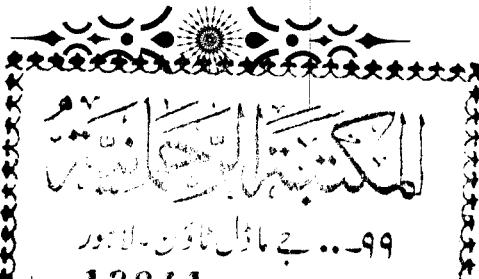 المكتبة الرحمانية
۹۹... جے ماڈل ٹاؤن ۔ لاہور